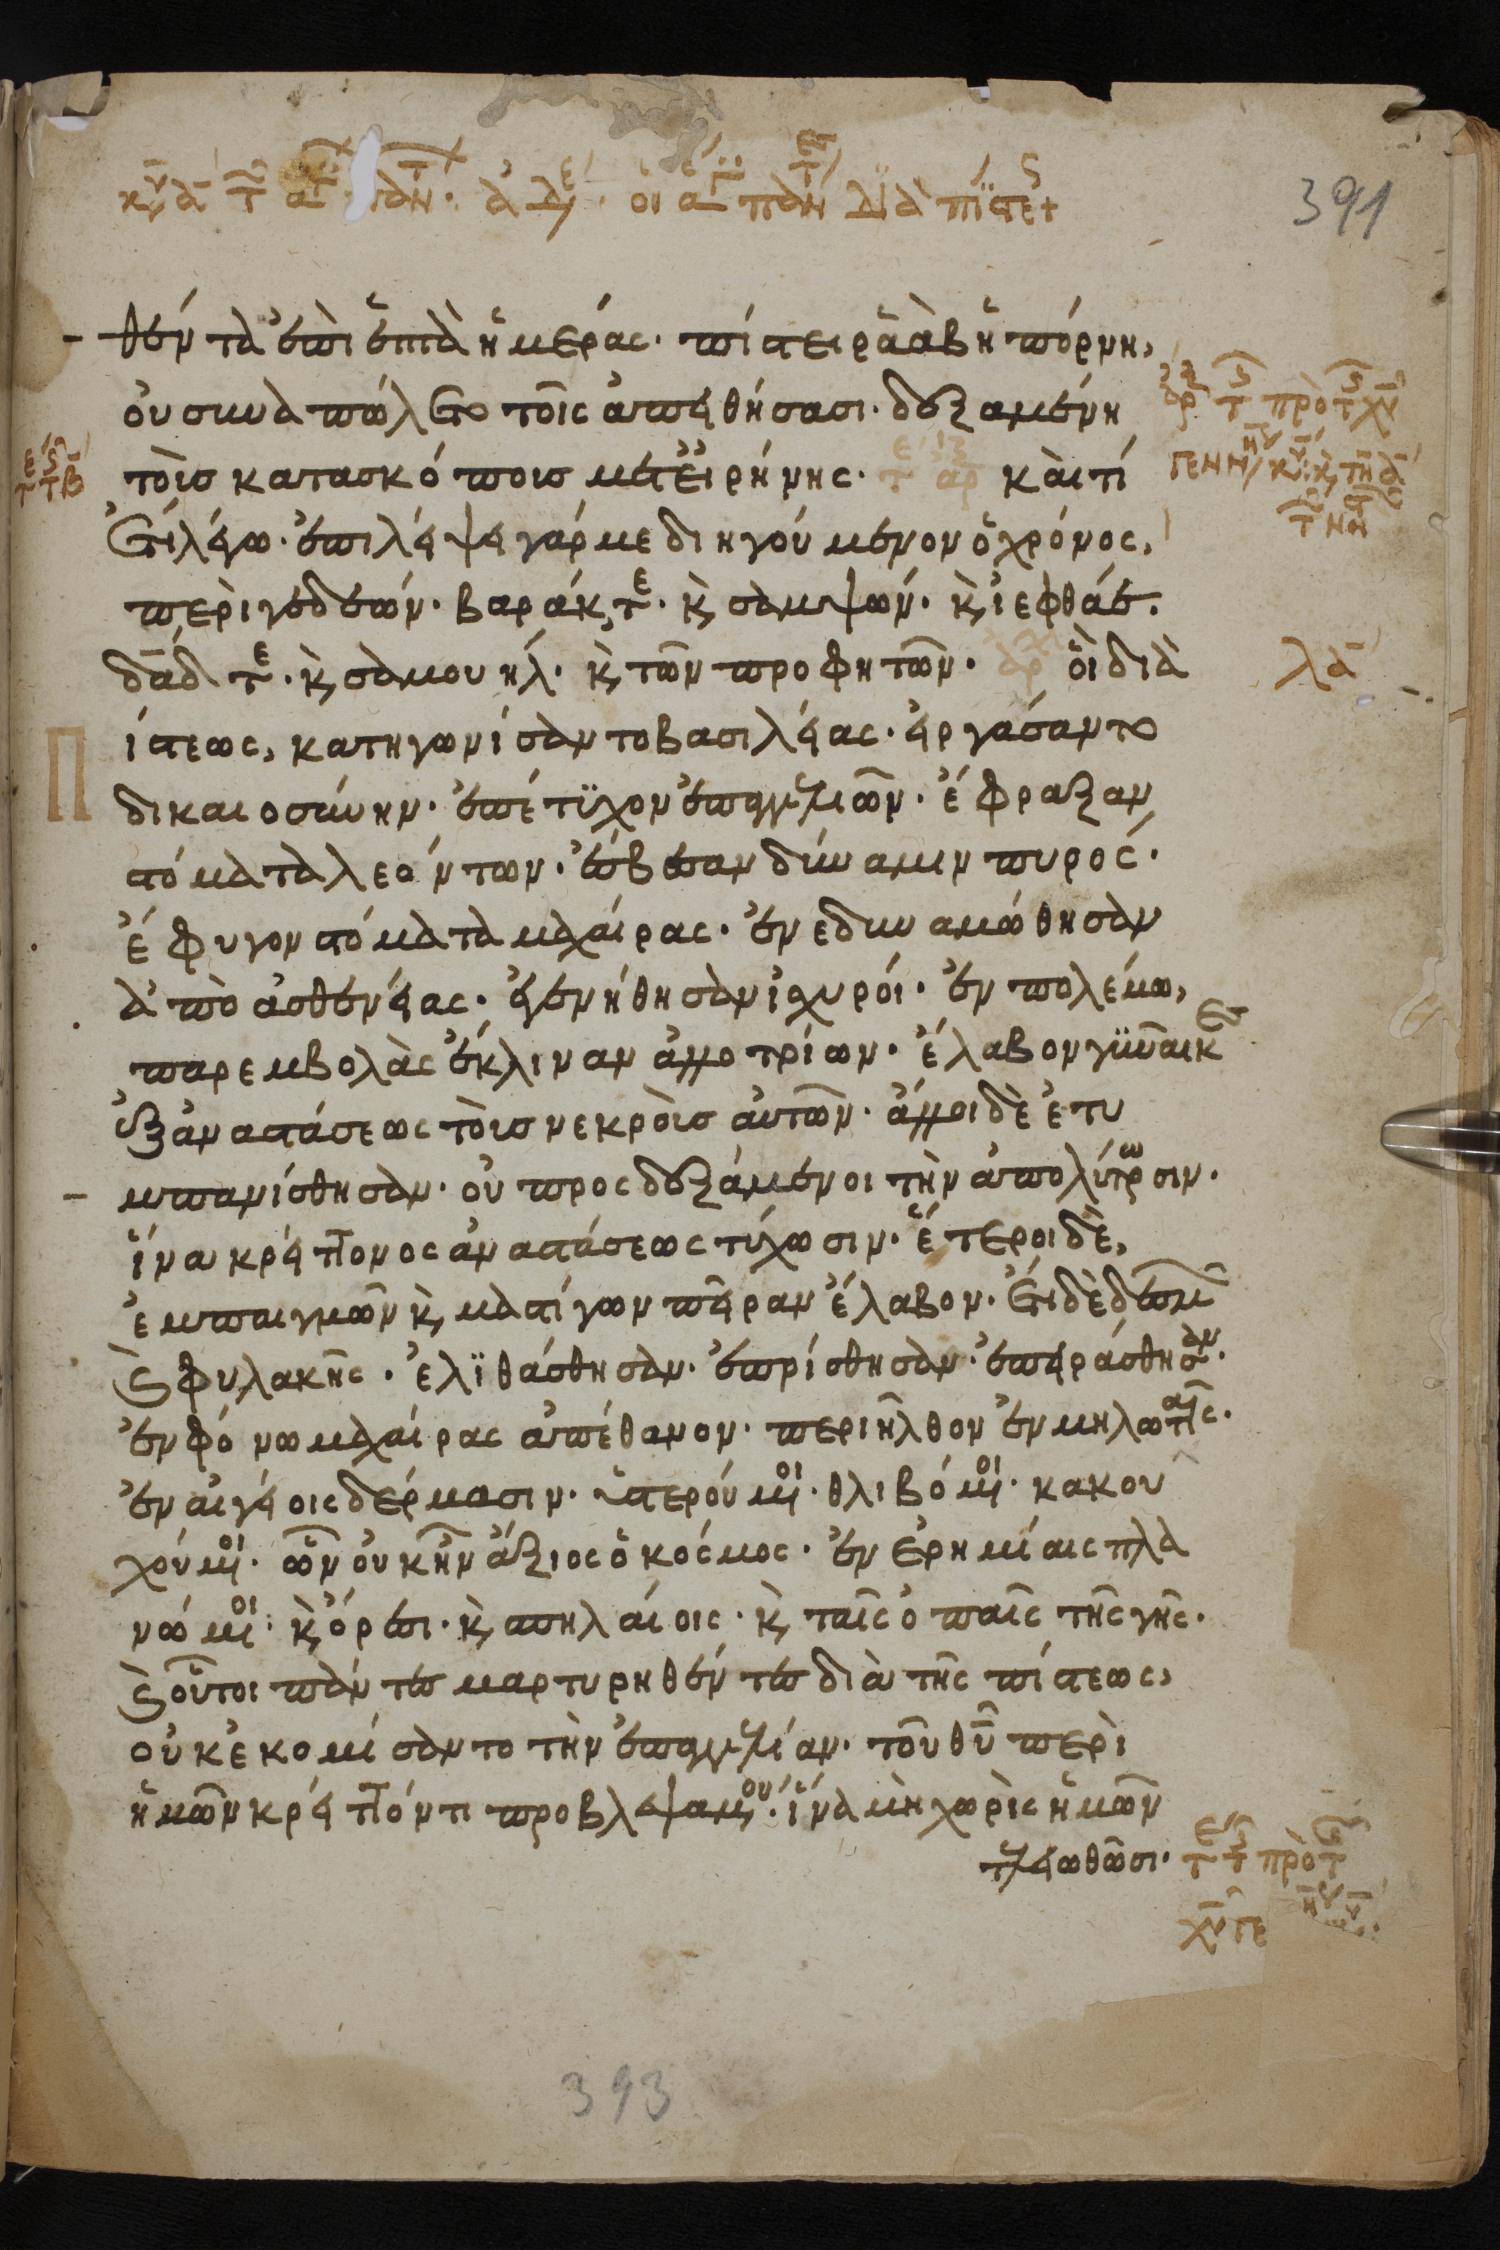 391
θέντα ἐπὶ ἑπτὰ ἡμέρας· πίστει ῥαὰβ ἡ πόρνη,
οὐ συναπώλετο τοῖς ἀπειθήσασι· δεξαμένη
τοὺς κατασκόπους μετ εἰρήνης· καὶ τί
ἔτι λέγω· ἐπιλείψει γάρ με διηγούμενον ὁ χρόνος,
περὶ γεδεών· βαράκ τε· κ, σαμψών· κ, ἰεφθάε·
δᾱδ τε· κ, σαμουήλ· κ, τῶν προφητῶν· οἳ διὰ
ίστεως, κατηγωνίσαντο βασιλείας· εἰργάσαντο
δικαιοσύνην· ἐπέτϋχον ἐπαγγελιῶν· ἔφραξαν
στόματα λεόντων· ἔσβεσαν δύναμιν πυρός·
ἔφυγον στόματα μαχαίρας· ἐνεδυναμώθησαν
ἀπὸ ἀσθενείας· ἐγενήθησαν ἰσχυροί· ἐν πολέμω,
παρεμβολὰς ἔκλιναν ἀλλοτρίων· ἔλαβον γϋναῖκες
ἐξ ἀναστάσεως τοὺς νεκροὺς αὐτῶν· ἄλλοι δὲ ἐτυ
μπανίσθησαν· οὐ προσδεξάμενοι τὴν ἀπολύτρωσιν·
ἵνα κρείττονος ἀναστάσεως τύχωσιν· ἕτεροι δὲ,
ἐμπαιγμῶν κ, μαστίγων πεῖραν ἔλαβον· ἔτι δὲ δεσμῶν
κ, φυλακῆς· ἐλϊθάσθησαν· ἐπρίσθησαν· ἐπειράσθησαν·
ἐν φόνω μαχαίρας ἀπέθανον· περιῆλθον ἐν μηλωταῖς·
ἐν αἰγείοις δέρμασιν· ὑστερούμενοι· θλιβόμενοι· κακου
χούμενοι· ὧν οὐκ ἦν ἄξιος ὁ κόσμος· ἐν ἐρημίαις πλα
νώμενοι· κ, ὄρεσι· κ, σπηλαίοις· κ, ταῖς ὀπαῖς τῆς γῆς·
κ, οὗτοι πάντες μαρτυρηθέντες διὰ τῆς πίστεως,
οὐκ ἐκομίσαντο τὴν ἐπαγγελίαν· τοῦ θῡ περὶ
ἡμῶν κρεῖττόν τι προβλεψαμένου· ἵνα μὴ χωρὶς ἡμῶν
τελειωθῶσι·
393